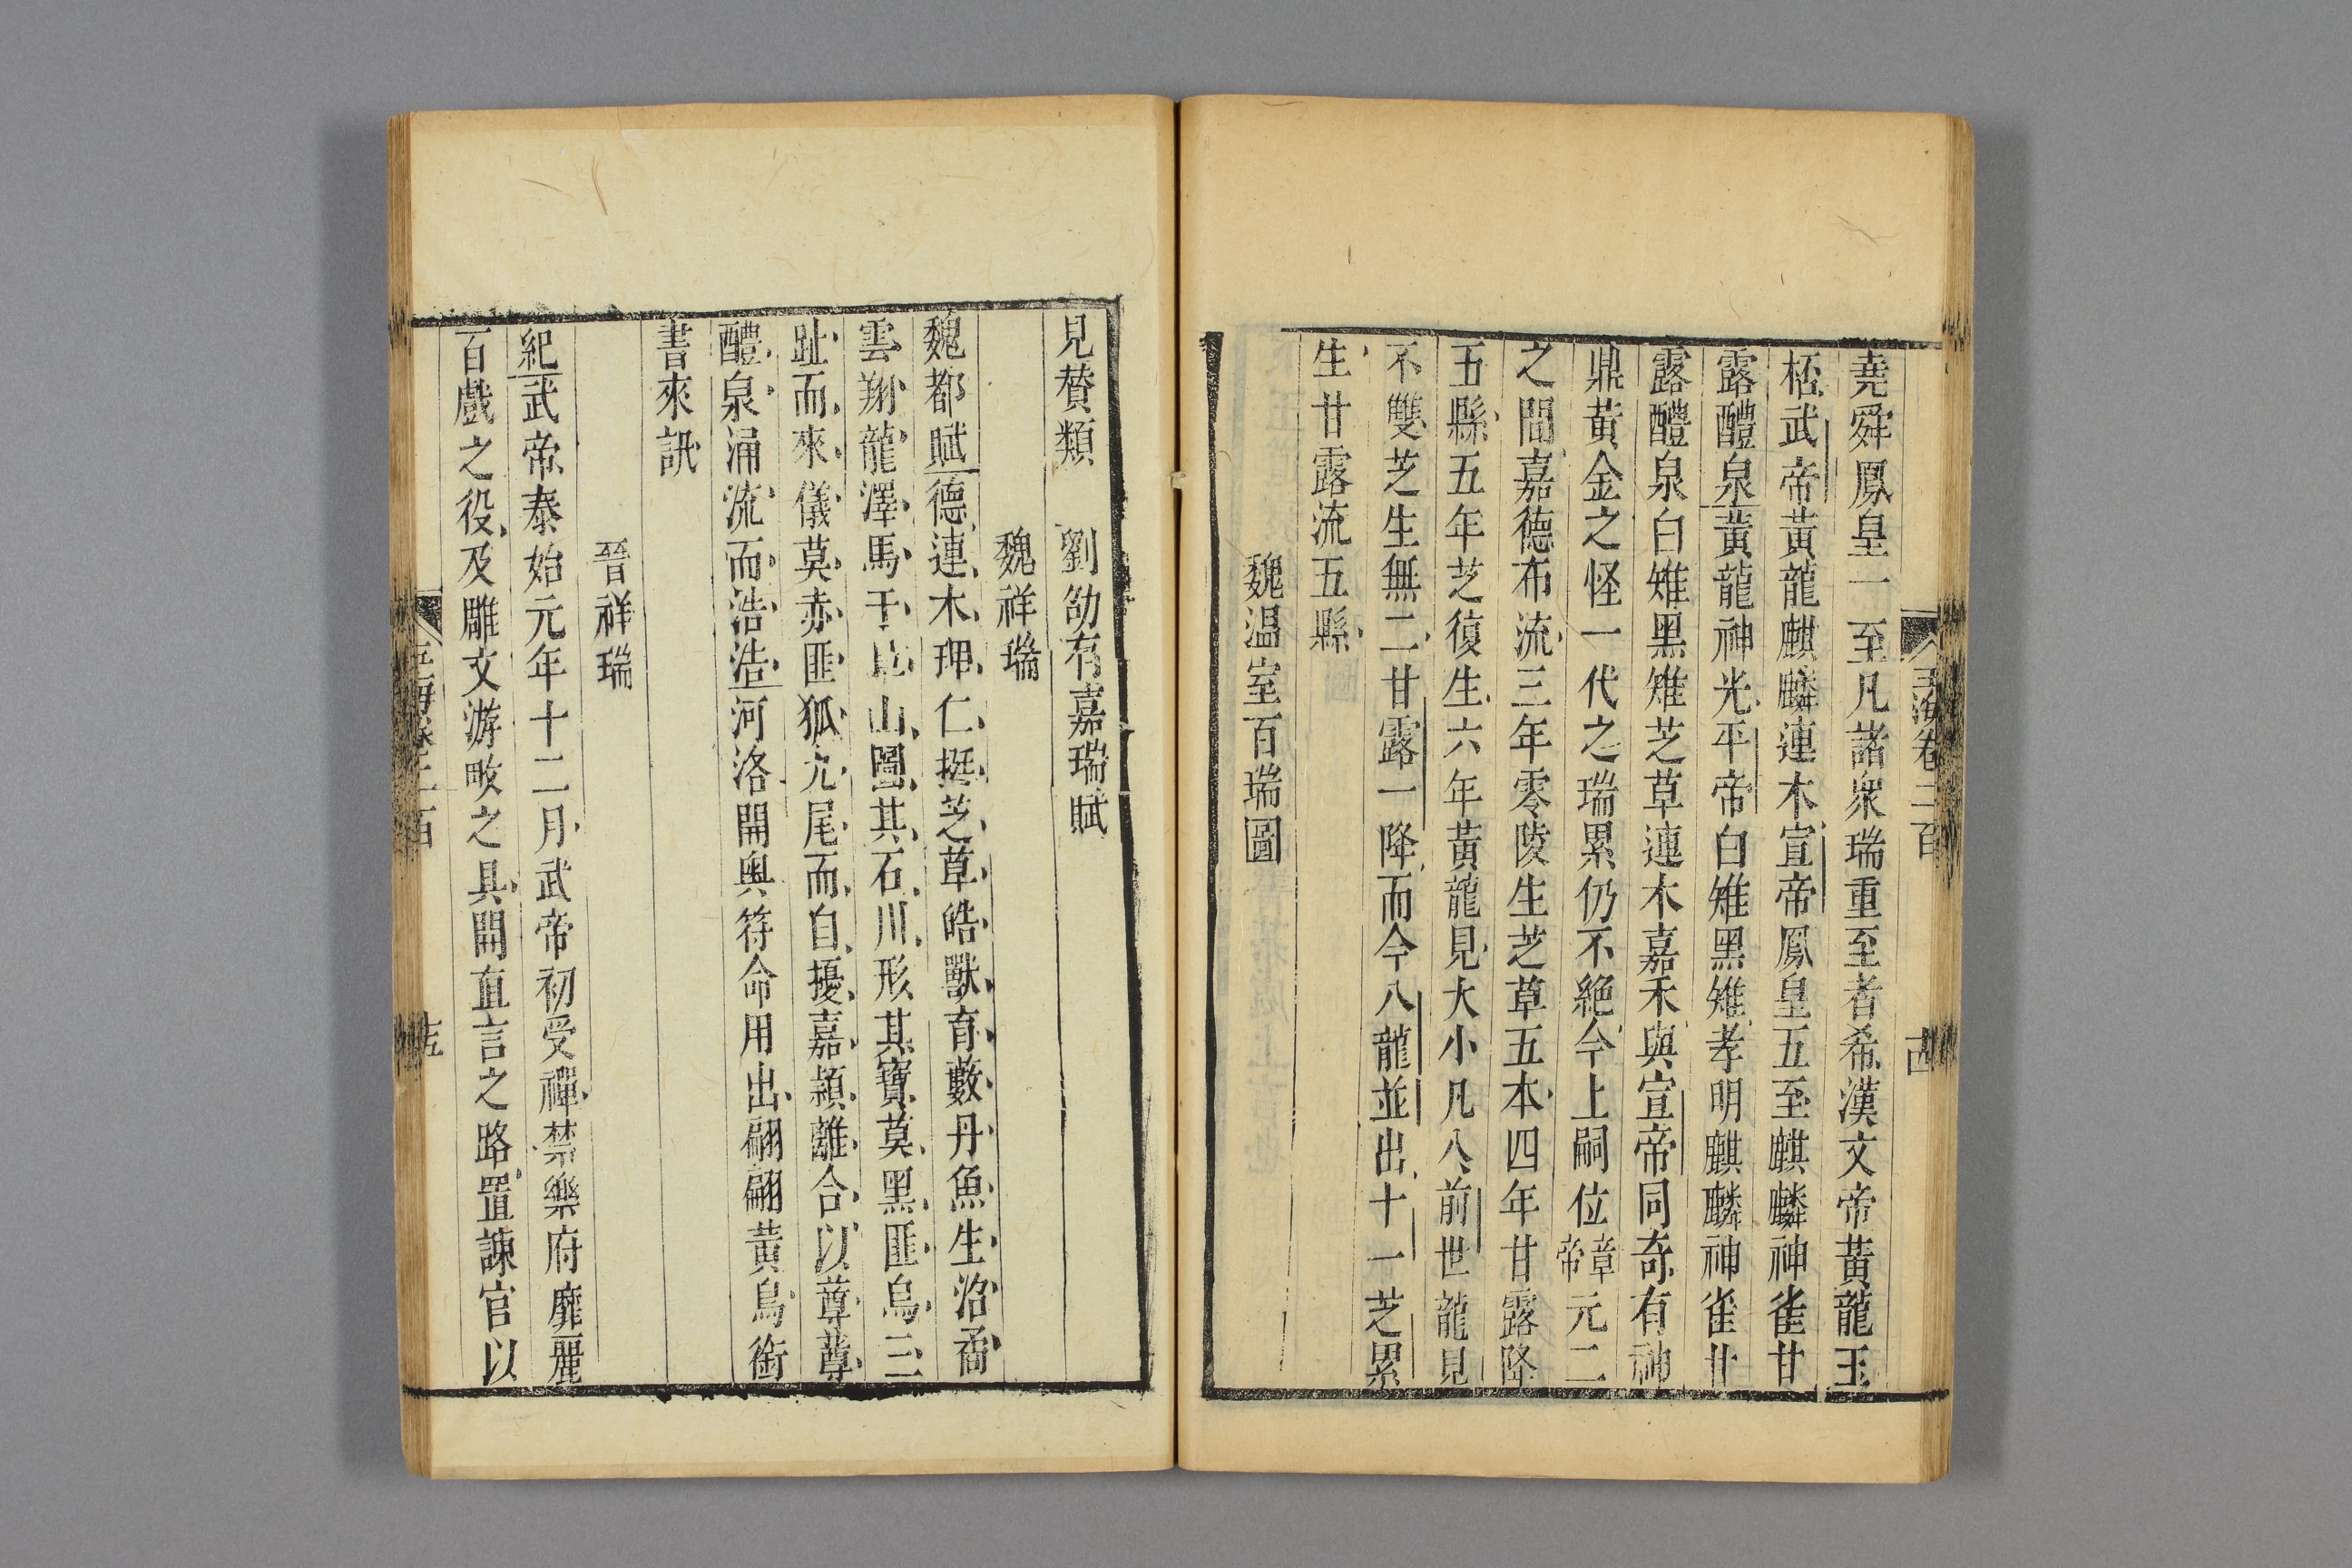 玉海卷二百
堯舜鳳皇一至凡諸衆瑞重至者希漢文帝黃龍玉
桮武帝黃龍麒麟連木宣帝鳳皇五至麒麟神雀甘
露醴泉黃龍神光平帝白雉黑雉孝明麒麟神雀甘
露醴泉白雉黑雉芝草連木嘉禾與宣帝同奇有神
鼎黃金之怪一代之瑞累仍不絕今上嗣位章帝元二
之間嘉德布流三年零陵生芝草五本四年甘露降
五縣五年芝復生六年黃龍見大小凡八前世龍見
不雙芝生無二甘露一降而今八龍並出十一芝累
生甘露流五縣
魏温室百瑞圖
見贊類 劉劭有嘉瑞賦
魏祥瑞
魏都賦德連木理仁挺芝草皓獸育藪丹魚生沼矞
雲翔龍澤馬于阜山圖其石川形其寶莫黑匪烏三
趾而來儀莫赤匪狐九尾而自擾嘉穎離合以蓴蓴
醴泉涌流而浩浩河洛開奧符命用出翩翩黃鳥銜
書來訊
晉祥瑞
紀武帝泰始元年十二月武帝初受禪禁樂府靡麗
百戲之役及雕文游畋之具開直言之路置諫官以